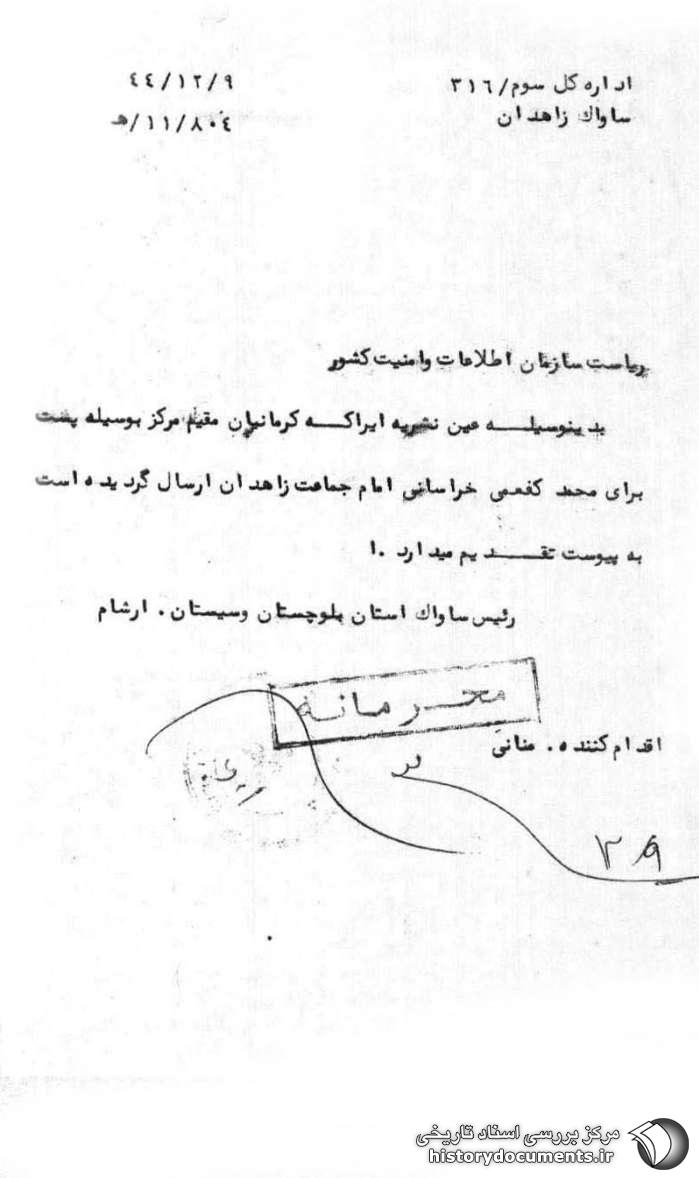 اداره کل سوم/۳۱٦
ساواك زاهدان
٤٤/۱۲/۹
۸۰٤/۱۱/ﻫ
ریاست سازمان اطلاعات وامنیت کشور
بدینوسیله عین نشریه ایراکه کرمانیان مقیم مرکز بوسیله پست
برای محمد کفعمی خراسانی امام جماعت زاهدان ارسال گردیده است
به پیوست تقدیم میدارد .ا
رئیس ساواك استان بلوچستان وسیستان . ارشام
محرمانه
اقدام کننده . منانی
مرکز بررسی اسناد تاریخی
historydocuments.ir